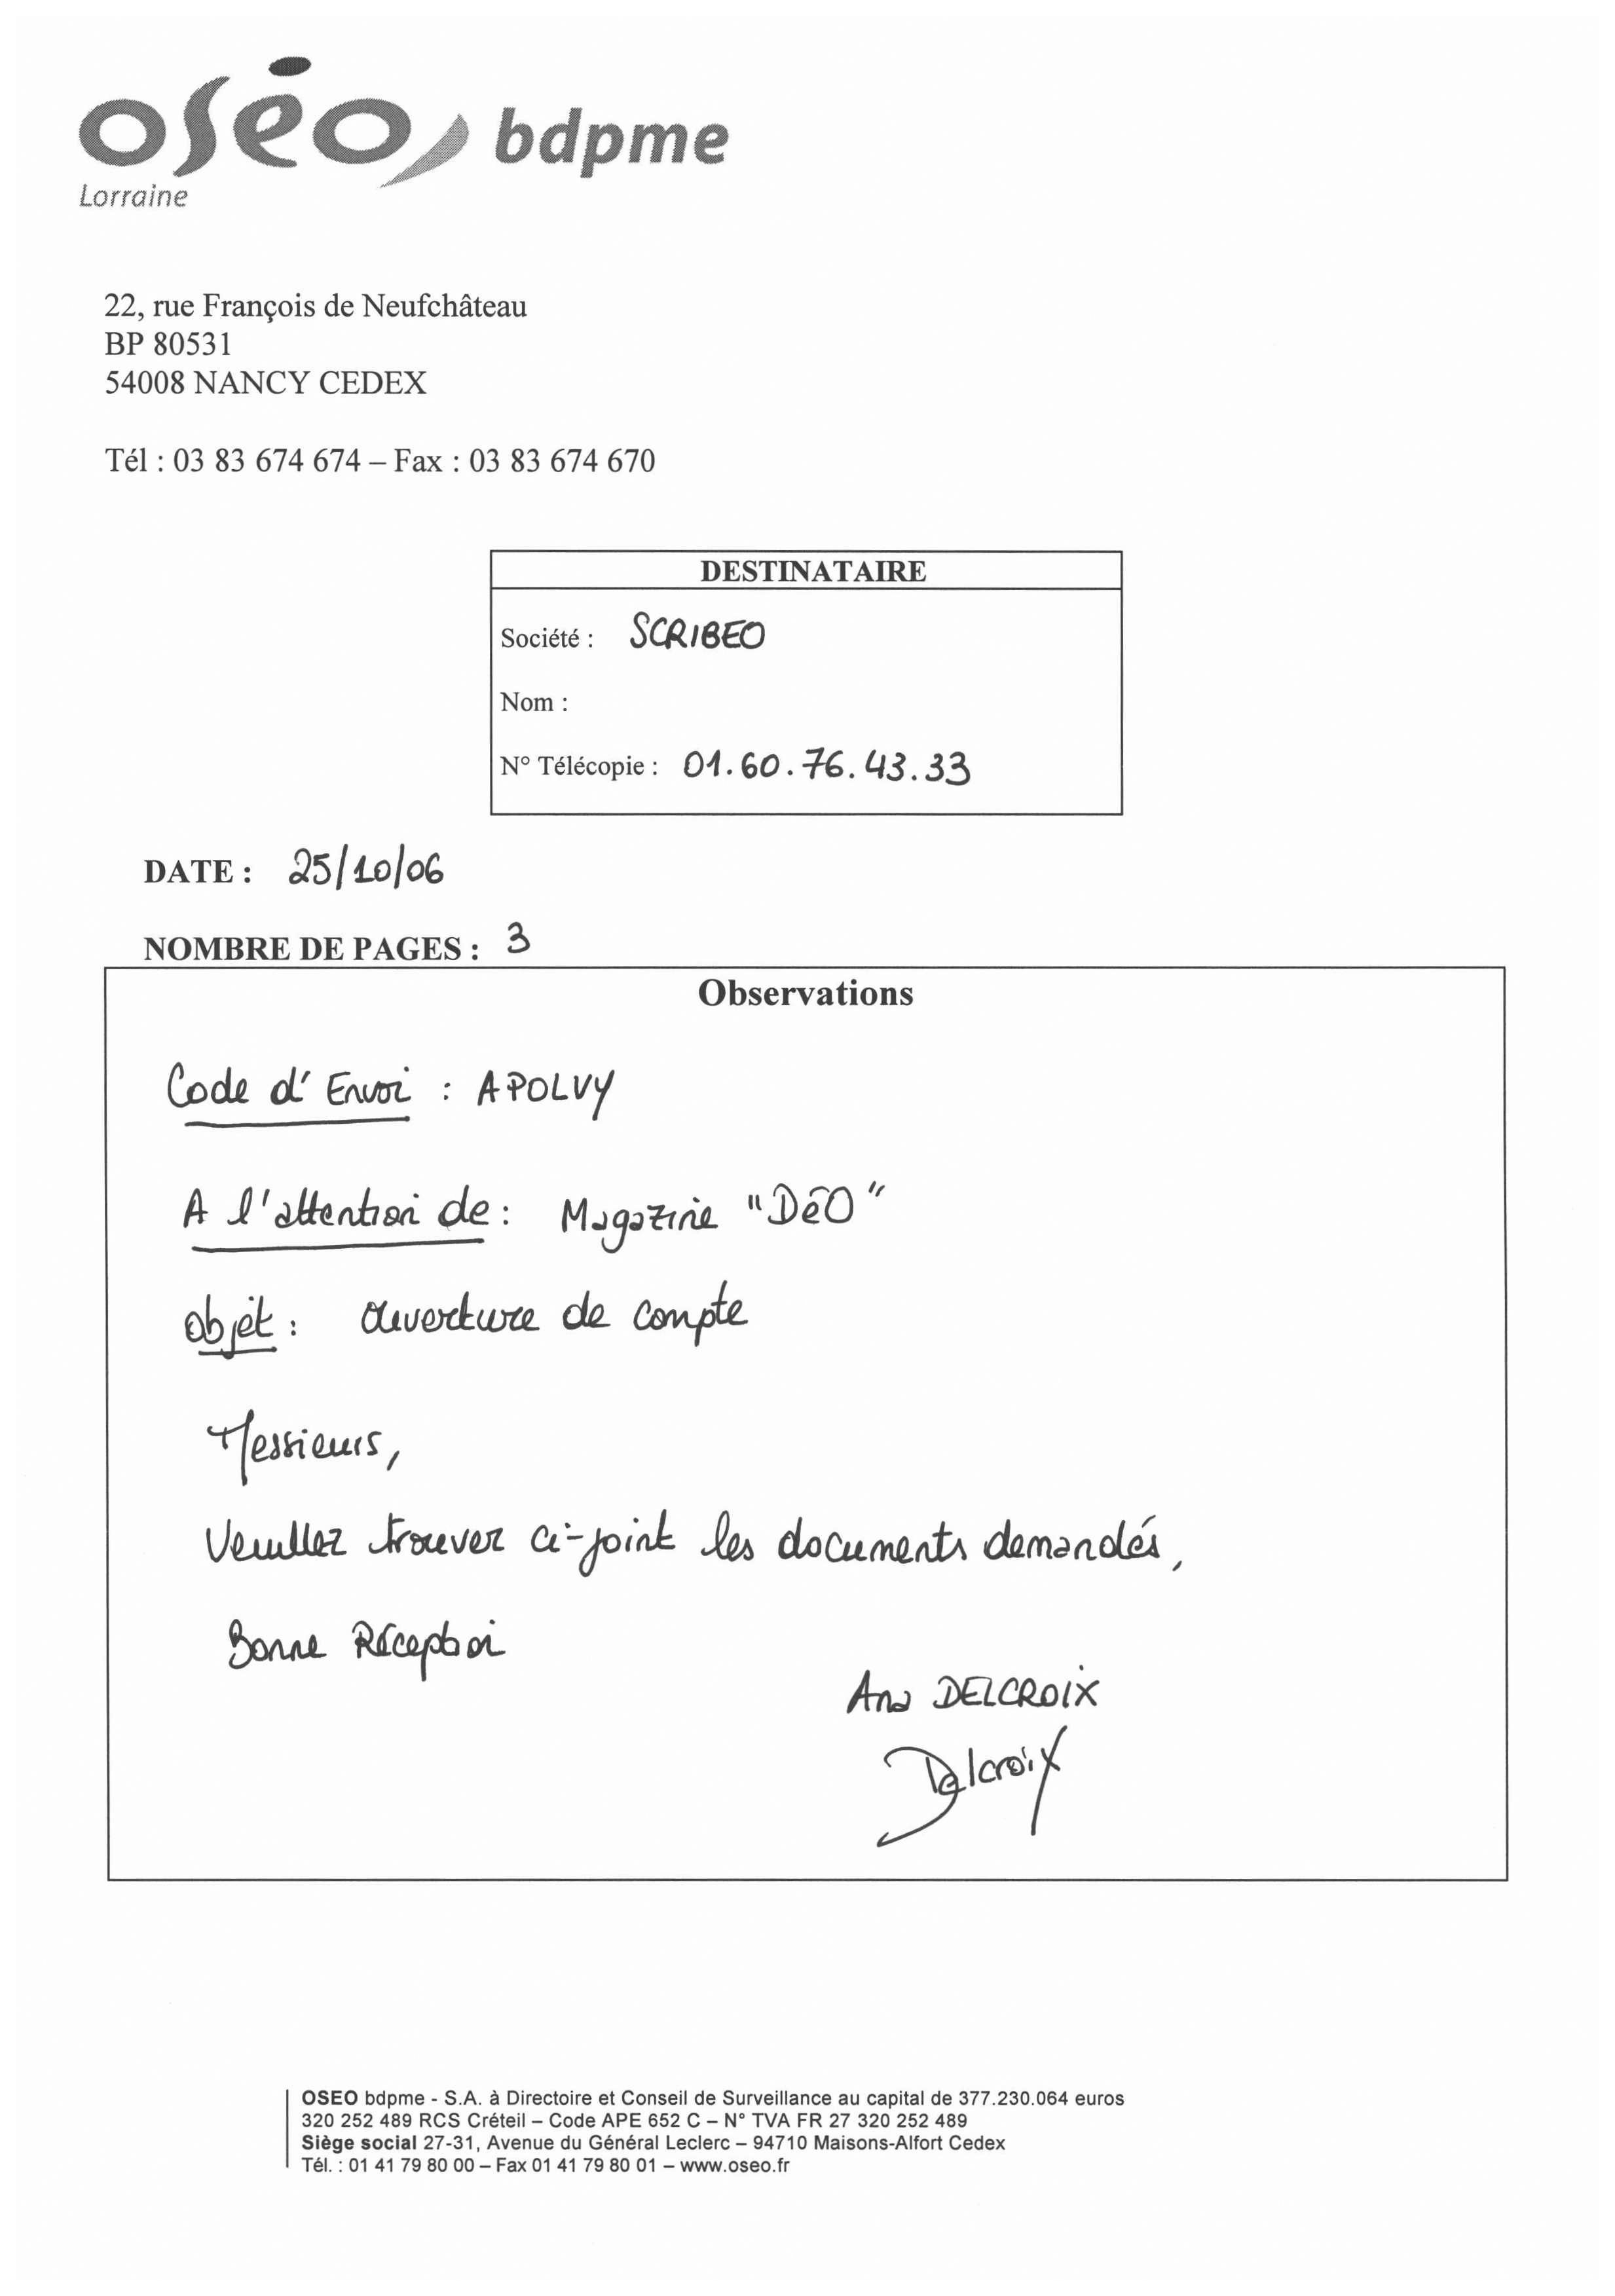 oséo bdpme
Lorraine
22, rue François de Neufchâteau
BP 80531
54008 NANCY CEDEX
Tél : 03 83 674 674 – Fax : 03 83 674 670
DESTINATAIRE
Société : SCRIBEO
Nom :
N° Télécopie : 01.60.76.43.33
DATE : 25/10/06
NOMBRE DE PAGES : 3
Observations
Code d'Envoi : APOLVY
A l'attention de : Magazine "DéO"
objet : ouverture de compte
Messieurs,
Veuillez trouver ci-joint les documents demandés,
Bonne Réception
Ana DELCROIX
Delcroix
OSEO bdpme - S.A. à Directoire et Conseil de Surveillance au capital de 377.230.064 euros
320 252 489 RCS Créteil – Code APE 652 C – N° TVA FR 27 320 252 489
Siège social 27-31, Avenue du Général Leclerc – 94710 Maisons-Alfort Cedex
Tél. : 01 41 79 80 00 – Fax 01 41 79 80 01 – www.oseo.fr